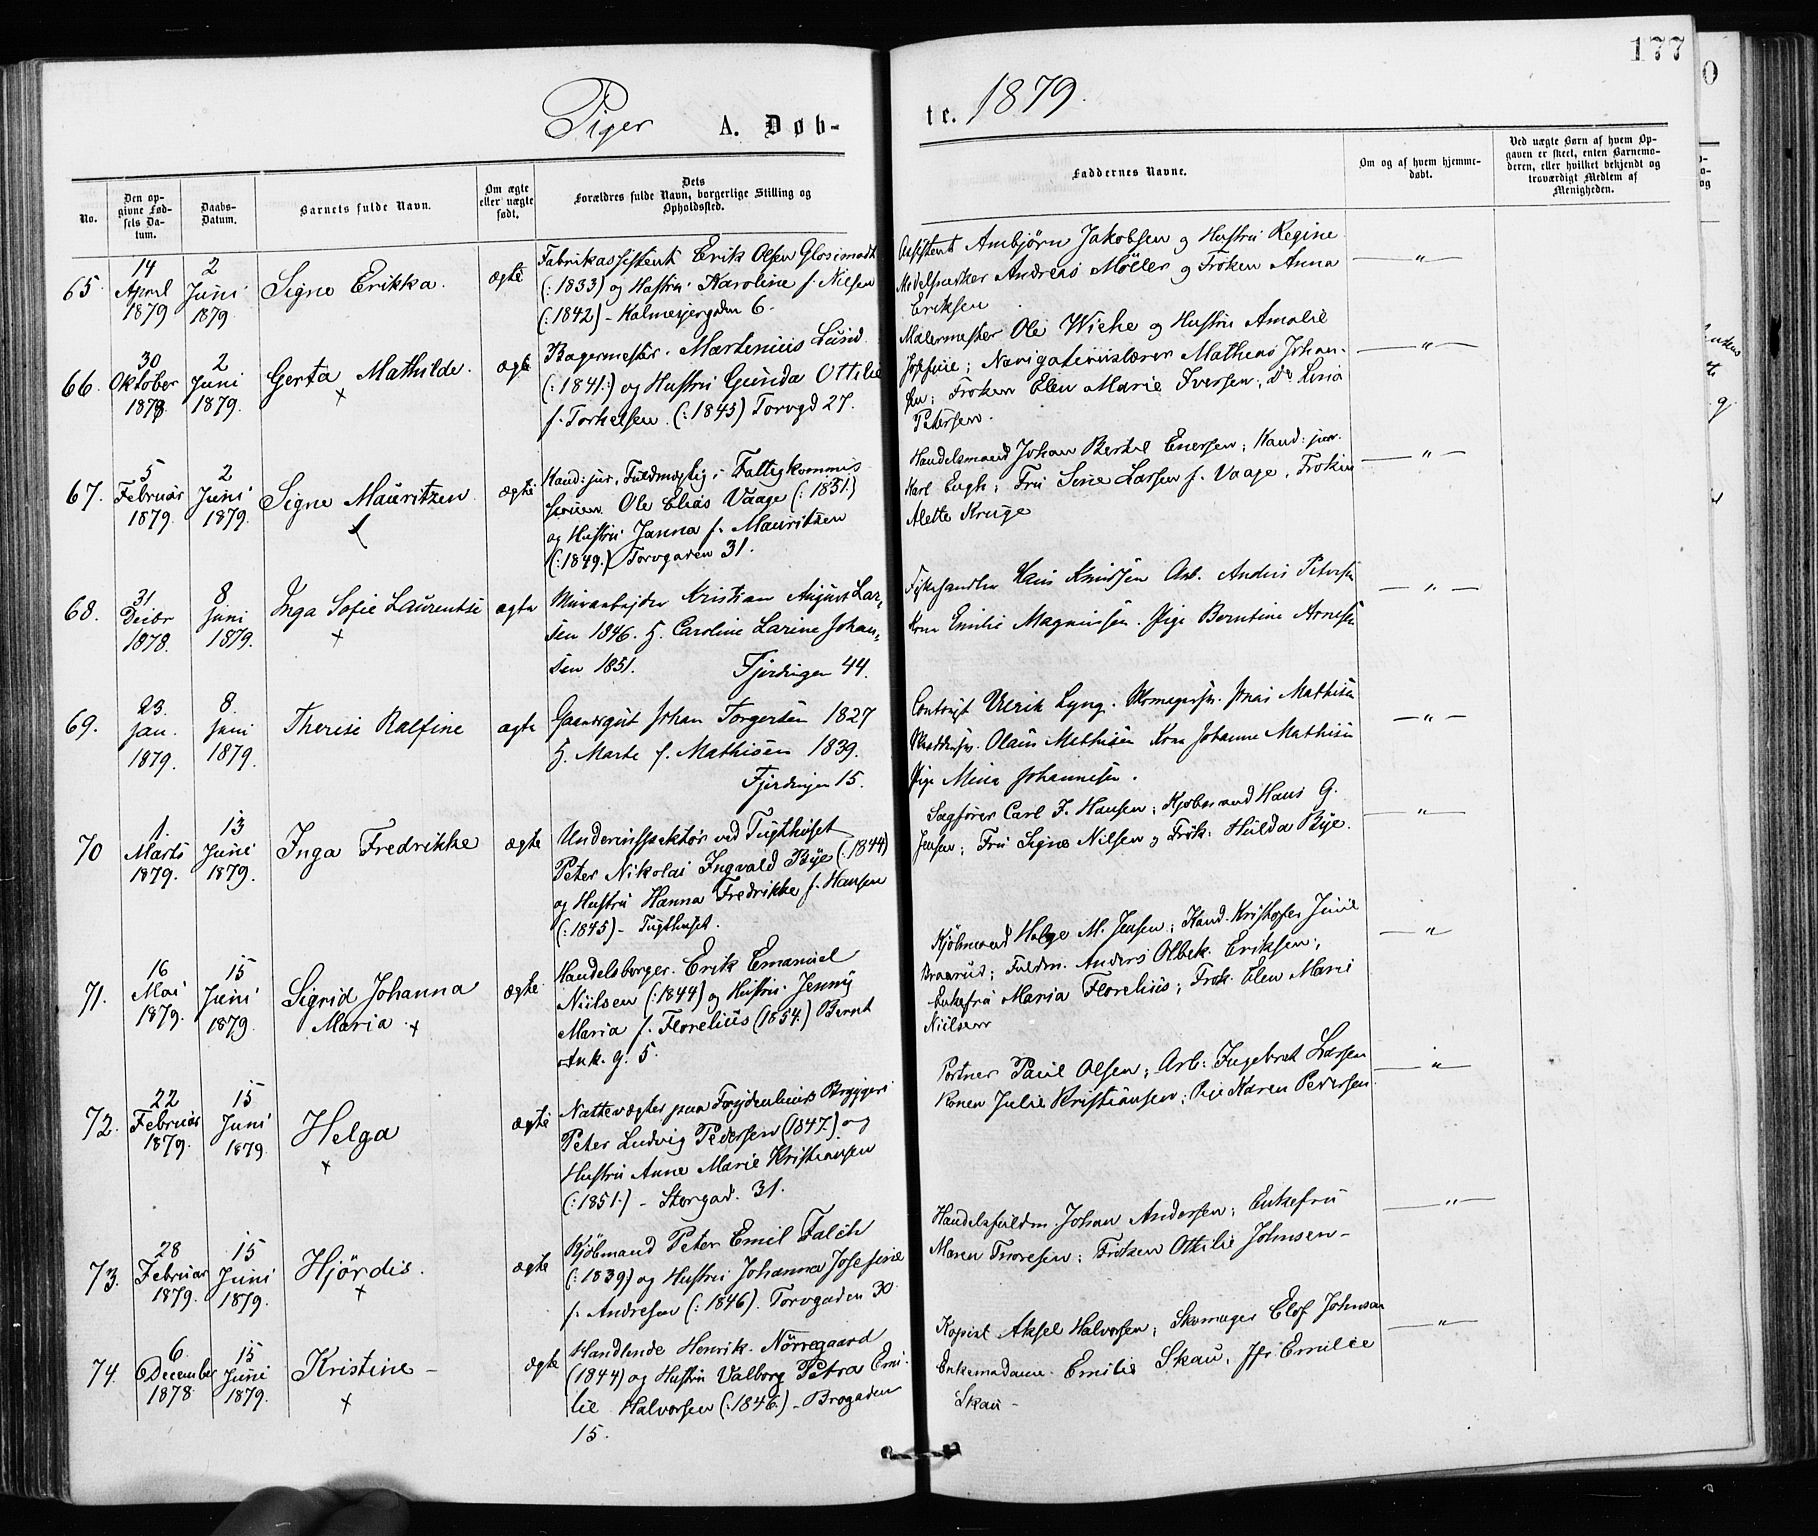 177
Piger A. Døb-
te. 1879.
No.
Den op-
givne Fød-
sels Da-
tum.
Daabs-
Datum.
Barnets fulde Navn.
Om ægte
eller uægte
født.
Dets
Forældres fulde Navn, borgerlige Stilling og
Opholdssted.
Faddernes Navne.
Om og af hvem hjemme-
døbt.
Ved uægte Børn af hvem Op-
gaven er skeet, enten Barnemo-
deren, eller hvilket bekjendt og
troværdigt Medlem af
Menigheden.
65.
14
April
1879
2
Juni
1879.
Signe Erikka.
ægte
Fabrikassistent Erik Olsen Glosimodt
(:1833) og Hustru Karoline f. Nilsen
(:1842) - Kalmeyergaden 6.
Assistent Ambjørn Jakobsen og Hustru Regine
Andreas Möller og Frøken Anna
Eriksen
— " —
66.
30
Oktober
1878.
2
Juni
1879.
Gerta Mathilde.
×
ægte
Bagermester Martenius Lund
(:1841:) og Hustru Gunda Ottilie
f. Torkelsen. (:1845) Torvgd 27.
Malermester Ole Wiehe og Hustru Amalie
Josefine; Navigationslærer Mathias Johan-
sen; Frøken Elen Marie Iversen; Do Lina
Petersen.
— " —
67.
5
Februar
1879.
2
Juni
1879.
Signe Mauritzen
×
ægte
Kand: jur, Fuldmægtig i Fattigkommis
sionen Ole Elias Vaage (:1831.)
og Hustru Janna f. Mauritzen
(:1849.) Torvgaden 31.
Handelsmand Johan Bertel Enersen; Kand: jur.
Karl Engh; Fru Sine Larsen f. Vaage, Frøken
Alette Kruge
— " —
68.
31
Decbr
1878.
8
Juni
1879.
Inga Sofie Laurentse
×
ægte
Murarbejder Kristian August Lar-
sen 1846. H. Caroline Larine Johan-
sen 1851. Fjerdingen 44.
Fiskehandler Hans Knudsen Arb. Anders Petersen
Kone Emilie Magnussen. Pige Berntine Arnesen
— " —
69.
23.
Jan.
1879.
8.
Juni
1879.
Therese Ralfine
ægte
Gaardsgut Johan Torgersen 1827
H. Marte f. Mathisen 1839.
Fjerdingen 15.
Ulrik Lyng. Skomagersv. Mathisen
Olaus Mathisen Kone Johanne Mathisen
Pige Mina Johannesen.
— " —
70
1.
Marts
1879.
13
Juni
1879.
Inga Fredrikke
ægte
Underinspektør ved Tugthuset
Peter Nikolai Ingvald Bye (:1844)
og Hustru Hanna Fredrikke f. Hansen
(:1845) - Tugthuset.
Sagfører Carl F. Hansen; Kjøbmand Hans G.
Jensen; Fru Signe Nilsen og Frøk: Hulda Bye.
— " —
71.
16
Mai
1879.
15
Juni
1879.
Sigrid Johanna
Maria. ×
ægte.
Handelsborger. Erik Emanuel
Nielsen (:1844) og Hustru Jenny
Maria f. Florelius (1854.) Bernt
Ank. g. 5.
Kjøbmand Helge M. Jensen; Kand. Kristofer Juul
Braarud; Fuldm. Anders Olbek. Eriksen;
Enkefru Maria Florelius; Frøk. Elen Marie
Nielsen
— " —
72.
22
Februar
1879.
15
Juni
1879.
Helga
×
ægte
Nattevægter paa Frydenlunds Bryggeri
Peter Ludvig Pedersen (1847.) og
Hustru Anne Marie Kristiansen
(:1851.) - Storgad. 31.
Portner Paul Olsen; Arb: Ingebret Larsen
Konen Julie Kristiansen; Pige Karen Pedersen
— " —
73.
28
Februar
1879.
15
Juni
1879.
Hjördis.
×
ægte
Kjöbmand Peter Emil Falch
(:1839) og Hustru Johanna Josefine
f. Andresen (:1846). Torvgaden 30.
Handelsfuldm. Johan Andersen; Enkefru
Maren Thoresen; Frøken Ottilie Johnsen-
— " —
74.
6.
December
1878.
15
Juni
1879.
Kristine -
×
ægte
Handlende Henrik Nörregaard
(1844) og Hustru Valborg Petra Emi-
lie Halvorsen (:1846.) - Brogaden
15.
Kopist Aksel Halvorsen; Skomager Elof Johnson
Enkemadame Emilie Skau, Jfr Emilie
Skau -
— " —